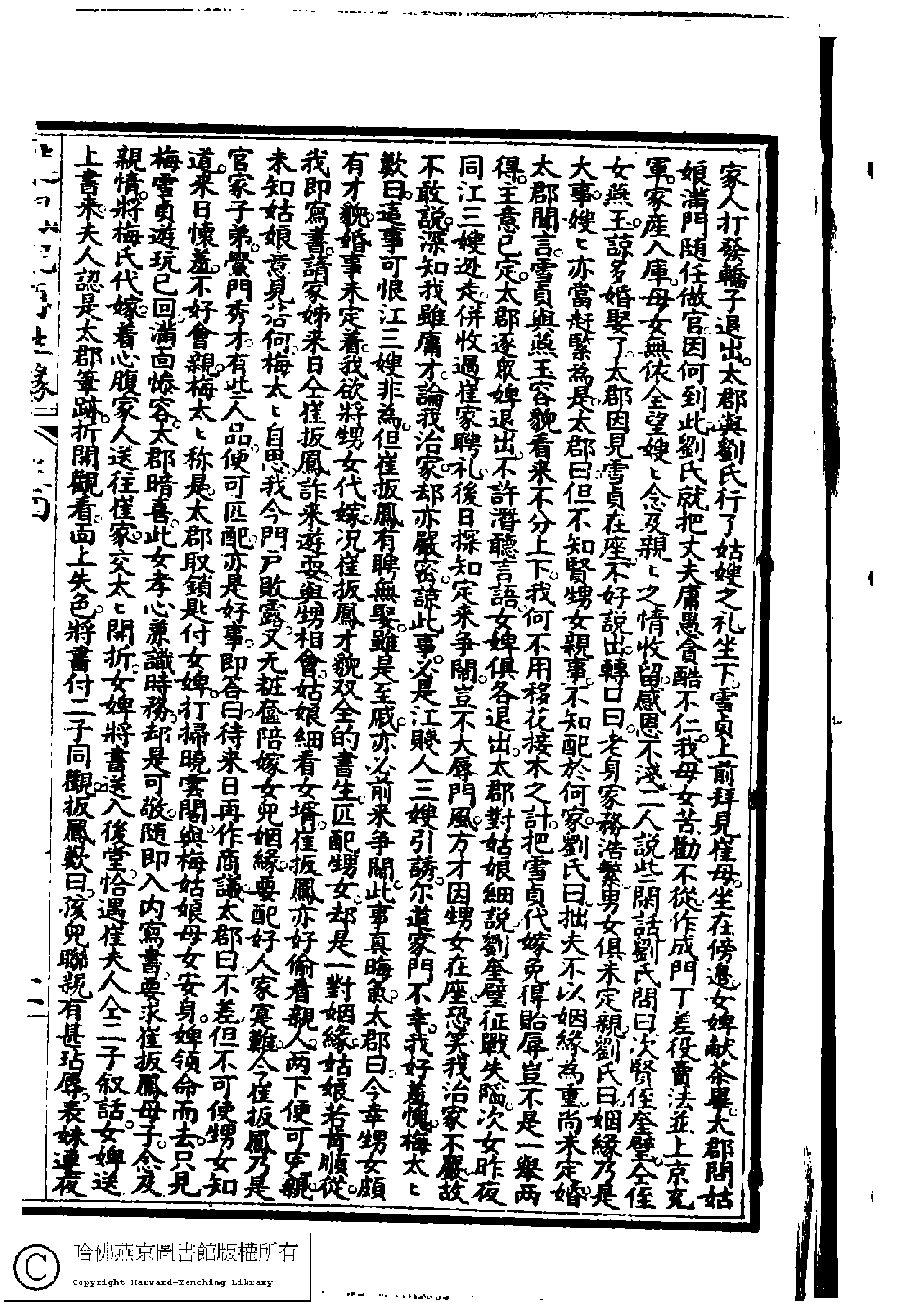 家人打發轎子退出太郡與劉氏行了姑嫂之礼坐下雪貞上前拜見崔母坐在傍邊女婢献茶畢太郡問姑
娘滿門随任做官因何到此劉氏就把丈夫庸愚貪酷不仁我母女苦勸不從作成門丁差役賣法並上京充
軍家産入庫母女無依全望嫂〻念及親〻之情收留感恩不淺二人説些閑話劉氏問曰次賢侄奎璧仝侄
女燕玉諒多婚娶了太郡因見雪貞在座不好説出轉口曰老身家務浩繁男女俱未定親劉氏曰姻緣乃是
大事嫂〻亦當赶緊為是太郡曰但不知賢甥女親事不知配於何家劉氏曰拙夫不以姻緣為重尚未定婚
太郡聞言雪貞與燕玉容貌看来不分上下我何不用移花接木之計把雪貞代嫁免得貽辱豈不是一舉両
得主意已定太郡逐衆婢退出不許潛聽言語女婢俱各退出太郡對姑娘細説劉奎璧征戰失陥次女昨夜
同江三嫂逃走併收過崔家聘礼後日探知定来争鬧豈不大辱門風方才因甥女在座恐笑我治家不嚴故
不敢説深知我雖庸才論我治家却亦嚴密諒此事必是江賤人三嫂引誘尔道家門不幸我好羞愧梅太〻
歎曰這事可恨江三嫂非為但崔扳鳳有聘無娶雖是至戚亦必前来争鬧此事真晦氣太郡曰今幸甥女頗
有才貌婚事未定着我欲將甥女代嫁况崔扳鳳才貌双全的書生匹配甥女却是一對姻緣姑娘若肯順從
我即寫書請家姊来日仝崔扳鳳詐来遊耍與甥相會姑娘細看女壻崔扳鳳亦好偷看親人両下便可定親
未知姑娘意見若何梅太〻自思我今門户敗露又无粧奩陪嫁女兒姻緣要配好人家寔難今崔扳鳳乃是
官家子弟黌門秀才有些人品便可匹配亦是好事即答曰待来日再作商議太郡曰不差但不可使甥女知
道来日懷羞不好會親梅太〻称是太郡取鎖匙付女婢打掃曉雲閣與梅姑娘母女安身婢領命而去只見
梅雪貞遊玩已回滿面惨容太郡暗喜此女孝心兼識時務却是可敬随即入内寫書要求崔扳鳳母子念及
親情將梅氏代嫁着心腹家人送往崔家交太〻開折女婢將書送入後堂恰遇崔夫人仝二子叙話女婢送
上書来夫人認是太郡筆跡折開觀看面上失色將書付二子同觀扳鳳歎曰孩兒聯親有甚玷辱表妹連夜
二
哈佛燕京圖書館版權所有
Copyright Harvard-Yenching Library